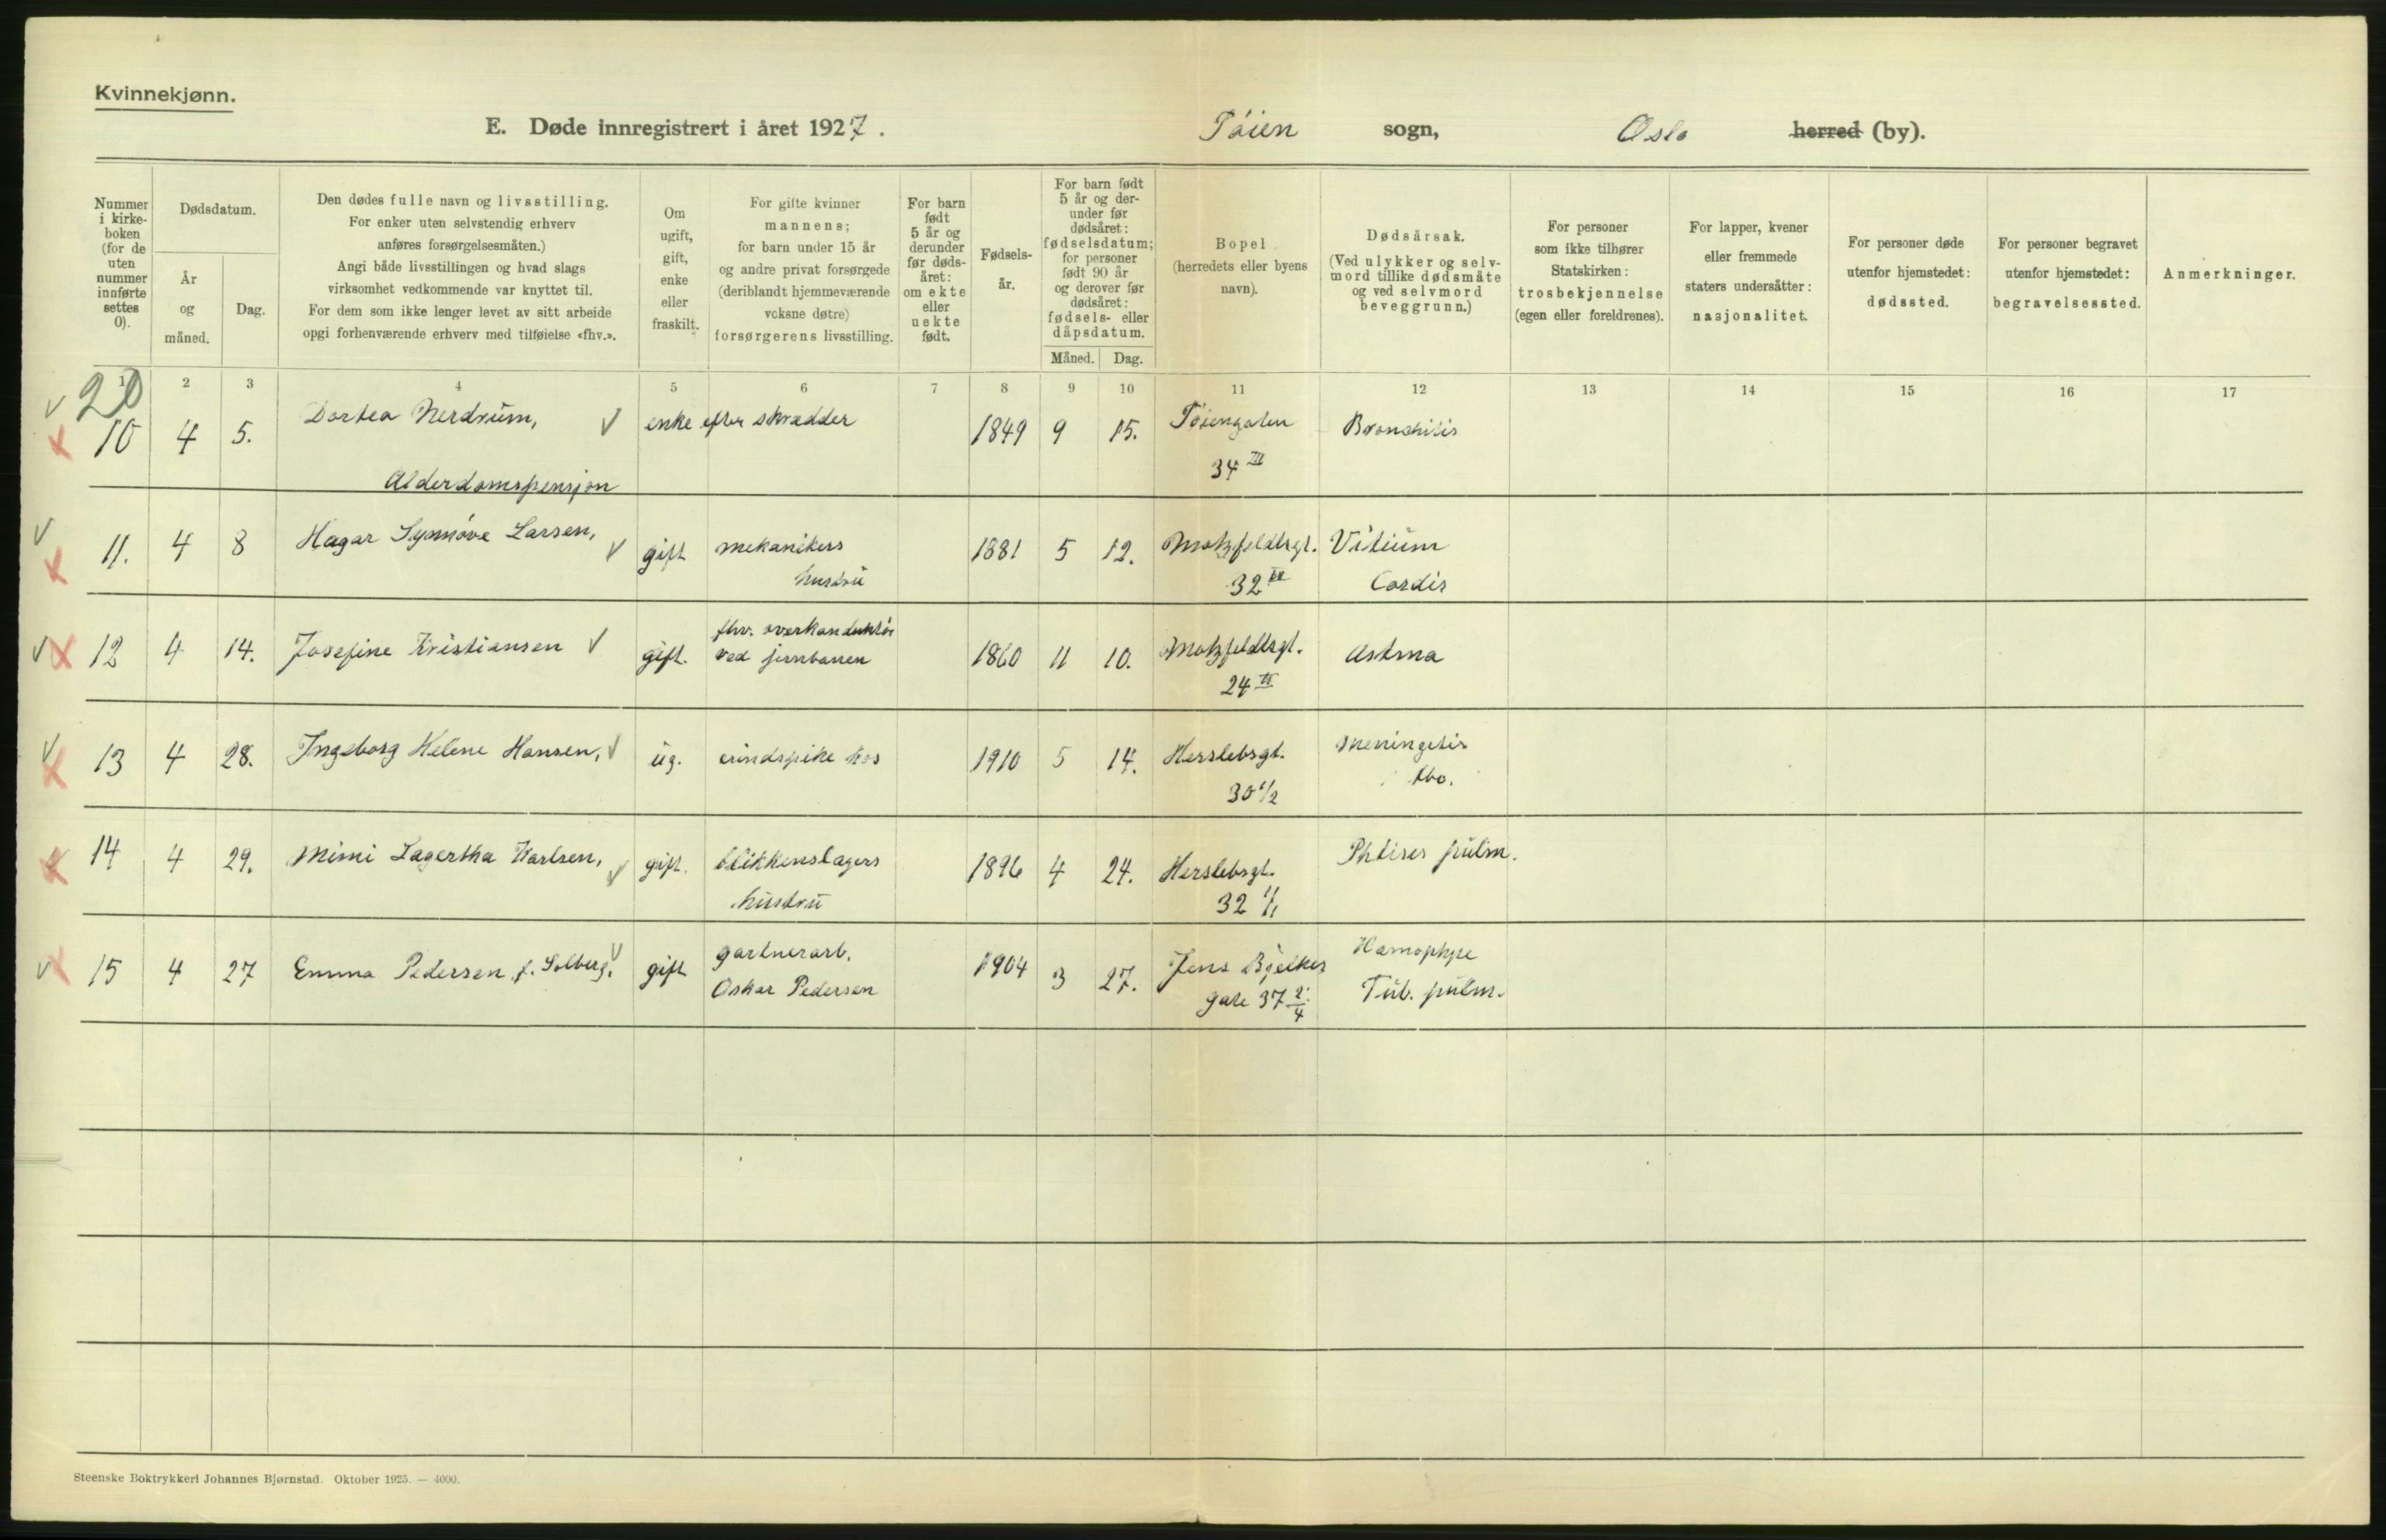 Kvinnekjønn.
E. Døde innregistrert i året 1927. Tøien sogn, Oslo herred (by).
Nummer i kirke-boken (for de uten nummer innførte settes 0).
Dødsdatum.
År og måned.
Dag.
Den dødes fulle navn og livsstilling.
For enker uten selvstendig erhverv
anføres forsørgelsesmåten.)
Angi både livsstillingen og hvad slags
virksomhet vedkommende var knyttet til.
For dem som ikke lenger levet av sitt arbeide
opgi forhenværende erhverv med tilføielse «fhv.».
Om ugift, gift, enke eller fraskilt.
For gifte kvinner
mannens;
for barn under 15 år
og andre privat forsørgede
(deriblandt hjemmeværende
voksne døtre)
forsørgerens livsstilling.
For barn født 5 år og derunder før døds-året: om ekte eller uekte født.
Fødsels-år.
For barn født 5 år og der-under før dødsåret: fødselsdatum; for personer født 90 år og derover før dødsåret: fødsels- eller dåpsdatum.
Måned. Dag.
Bopel
(herredets eller byens
navn).
Dødsårsak.
(Ved ulykker og selv-
mord tillike dødsmåte
og ved selvmord
beveggrunn.)
For personer
som ikke tilhører
Statskirken:
trosbekjennelse
(egen eller foreldrenes).
For lapper, kvener
eller fremmede
staters undersåtter:
nasjonalitet.
For personer døde
utenfor hjemstedet:
dødssted.
For personer begravet
utenfor hjemstedet:
begravelsessted.
Anmerkninger.
1 2 3 4 5 6 7 8 9 10 11 12 13 14 15 16 17
20
10 4 5. Dortea Nerdrum, enke efter skrædder 1849 9 15. Tøiengaten Bronchitis
34 III
Alderdomspensjon
11. 4 8 Hagar Synnøve Larsen, gift mekanikers 1881 5 12. Motzfeldtsgt. Vitium
hustru 32 IV Cordis
fhv. overkonduktør
12 4 14. Josefine Kristiansen gift. ved jernbanen 1860 11 10. Motzfeldtsgt. Astma
24 II
13 4 28. Ingeborg Helene Hansen, ug. erindspike hos 1910 5 14. Herslebsgt. Meningitis
30 1/2 tbc.
14 4 29. Mimi Lagertha Karlsen, gift. blikkenslagers 1896 4 24. Herslebsgt. Phtises pulm.
hustru 32
15 4 27 Emma Pedersen f. Solberg, gift gartnerarb. 1904 3 27. Jens Bjelkes Hæmophtye
Oskar Pedersen gate 37 2/4 Tub. pulm.
Steenske Boktrykkeri Johannes Bjørnstad. Oktober 1925. — 4000.